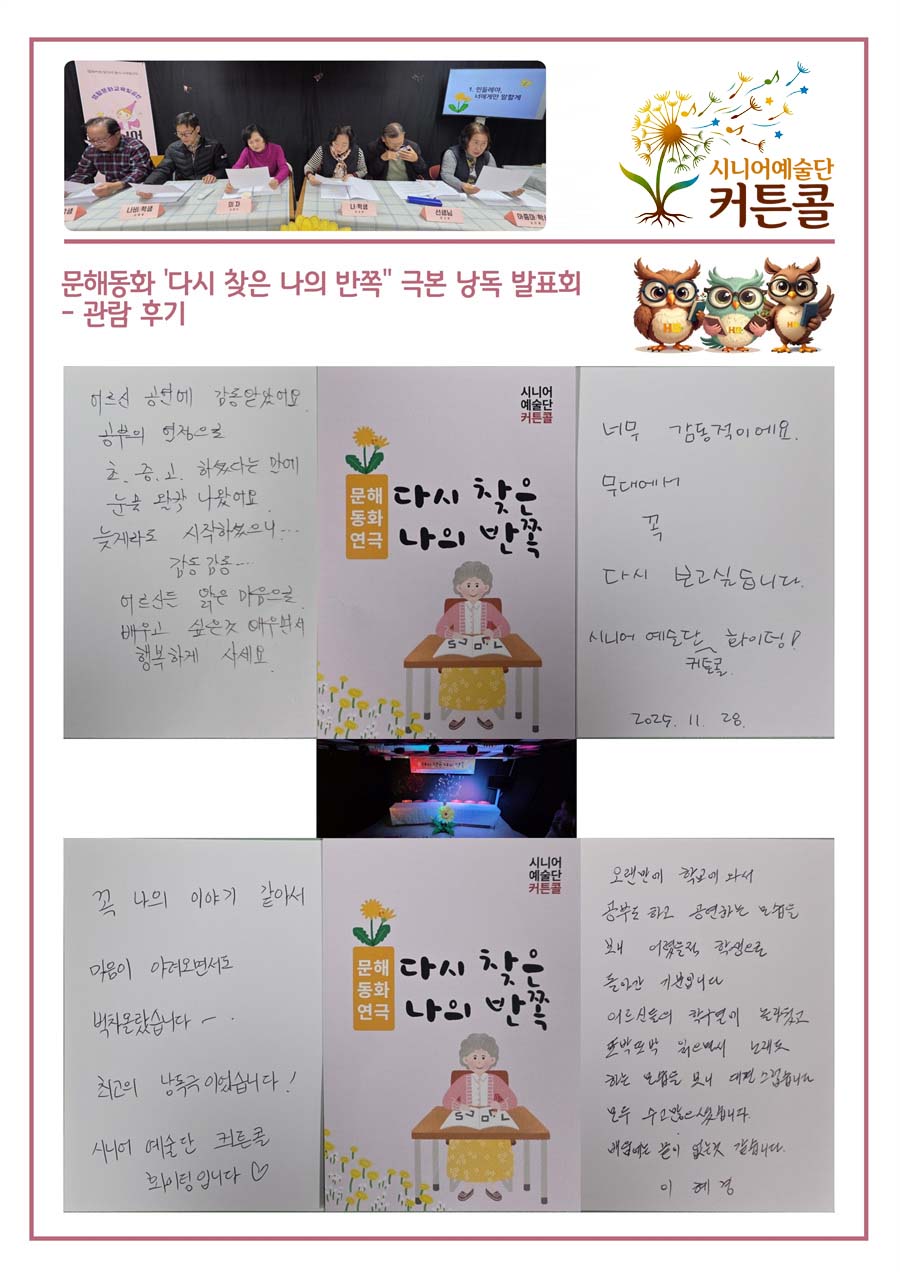 1. 민들레야,
너에게만 말할게
나비 학생
미자
나 학생
선생님
시니어예술단
커튼콜
문해동화 '다시 찾은 나의 반쪽" 극본 낭독 발표회
- 관람 후기
어르신 공연에 감동 받았어요
공부의 열정으로
초. 중. 고. 하셨다는 말에
눈물 왈칵 나왔어요
늦게라도 시작하셨으니...
감동 감동...
어르신들 맑은 마음으로
배우고 싶은것 배우면서
행복하게 사세요.
시니어
예술단
커튼콜
문해
동화
연극
다시 찾은
나의 반쪽
너무 감동적이에요.
무대에서
꼭
다시 보고싶습니다.
시니어 예술단 화이팅!
커튼콜.
2025. 11. 28.
꼭 나의 이야기 같아서
마음이 아려오면서도
벅차올랐습니다
최고의 낭독극이었습니다!
시니어 예술단 커튼콜
화이팅입니다 ♡
시니어
예술단
커튼콜
문해
동화
연극
다시 찾은
나의 반쪽
오랜만에 학교에 와서
공부도 하고 공연하는 모습을
보니 어렸을적 학생으로
돌아간 기분입니다
어르신들의 학구열이 놀라웠고
또박또박 읽으면서 노래도
하는 모습을 보니 대견스럽습니다
모두 수고많으셨습니다.
배움에는 끝이 없는것 같습니다.
이 혜 경